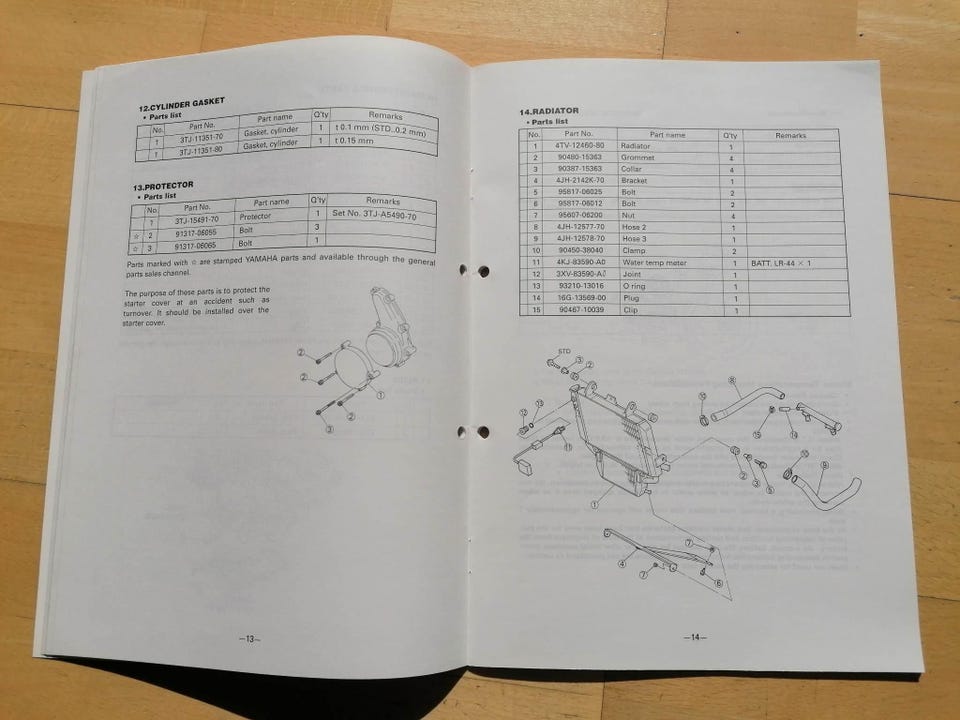 12.CYLINDER GASKET
• Parts list
No. Part No. Part name Q'ty Remarks
1 3TJ-11351-70 Gasket, cylinder 1 t 0.1 mm (STD..0.2 mm)
1 3TJ-11351-80 Gasket, cylinder 1 t 0.15 mm
13.PROTECTOR
• Parts list
No. Part No. Part name Q'ty Remarks
1 3TJ-15491-70 Protector 1 Set No. 3TJ-A5490-70
☆ 2 91317-06055 Bolt 3
☆ 3 91317-06065 Bolt 1
Parts marked with ☆ are stamped YAMAHA parts and available through the general
parts sales channel.
The purpose of these parts is to protect the
starter cover at an accident such as
turnover. It should be installed over the
starter cover.
2
2
1
2
3
—13—
14.RADIATOR
• Parts list
No. Part No. Part name Q'ty Remarks
1 4TV-12460-80 Radiator 1
2 90480-15363 Grommet 4
3 90387-15363 Collar 4
4 4JH-2142K-70 Bracket 1
5 95817-06025 Bolt 2
6 95817-06012 Bolt 2
7 95607-06200 Nut 4
8 4JH-12577-70 Hose 2 1
9 4JH-12578-70 Hose 3 1
10 90450-38040 Clamp 2
11 4KJ-83590-A0 Water temp meter 1 BATT. LR-44 × 1
12 3XV-83590-A0 Joint 1
13 93210-13016 O ring 1
14 16G-13569-00 Plug 1
15 90467-10039 Clip 1
STD
3
2
8
10
13
12
15
14
11
10
9
2
3
5
1
7
4
7
6
—14—